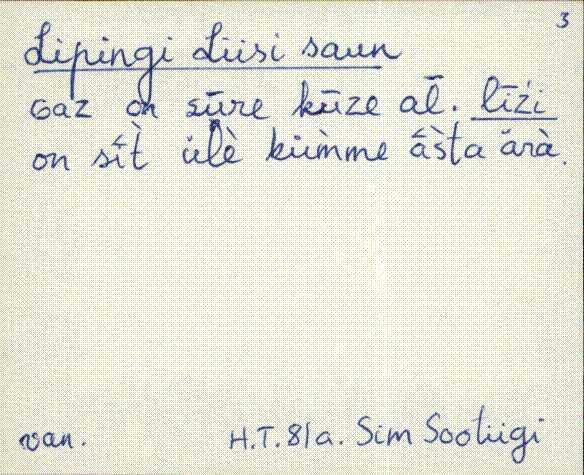 3
Lipingi Liisi saun
Gaz on sūre kūze al̄. līźi
on sît̀ ülè küm̀me âs̀ta ärà.
van.
H.T. 81a. Sim Sootiigi